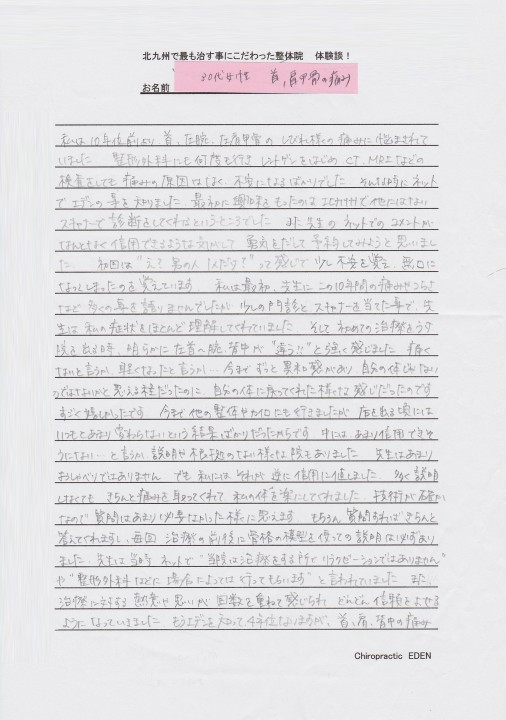 北九州で最も治す事にこだわった整体院　体験談！
お名前　30代女性　首、肩甲骨の痛み
私は10年位前より首、左腕、左肩甲骨のしびれ様な痛みに悩まされて
いました　整形外科にも何度も行きレントゲンをはじめCT、MRIなどの
検査をしても痛みの原因はなく、不安になるばかりでした　そんな時にネット
でエデンの事を知りました。最初に興味をもったのは北九州で他にはない
スキャナーで診断をしてくれるというところでした　また先生のネットでのコメントが
なんとなく信用できるような気がして　勇気をだして予約してみようと思いまし
た　初回は"え？男の人1人だけ？"って感じで少し不安を覚え、無口に
なってしまったのを覚えています　私は最初、先生にこの10年間の痛みやつらさ
など多くの事を語りませんでしたが　少しの問診とスキャナーを当てた事で、先
生は私の症状をほとんど理解してくれていました　そして初めての治療をうけ
院を出る時、明らかに左首〜腕、背中が"違う!!"と強く感じました　痛く
ないと言うか、軽くなったと言うか…今までずっと異和感があり　自分の体じゃない
のではないかと思える程だったのに、自分の体に戻ってくれた様な感じだったのです
すごく嬉しかったです　今まで他の整体やカイロにも行きましたが　店を出る頃には
いつもとあまり変わらないという結果ばかりだったからです　中には、あまり信用できそ
うにない…と言うか説明や根拠のない様な院もありました　先生はあまり
おしゃべりではありません　でも私にはそれが逆に信用に値しました　多く説明
しなくても　きちんと痛みを取ってくれて　私の体を楽にしてくれました　技術が確か
なので質問はあまり必要なかった様に思えます　もちろん質問すればきちんと
答えてくれますし、毎回　治療の前後に骨格の模型を使っての説明は必ずあり
ました　先生は当時ネットで"当院は治療をする所でリラクゼーションではありません"
や"整形外科などに場合によっては行ってもらいます"と言われていました　また、
治療に対する熱意や思いが回数を重ねて感じられ　どんどん信頼をよせる
ようになっていきました　もうエデンを知って4年位なりますが、首、肩、背中の痛み
Chiropractic EDEN